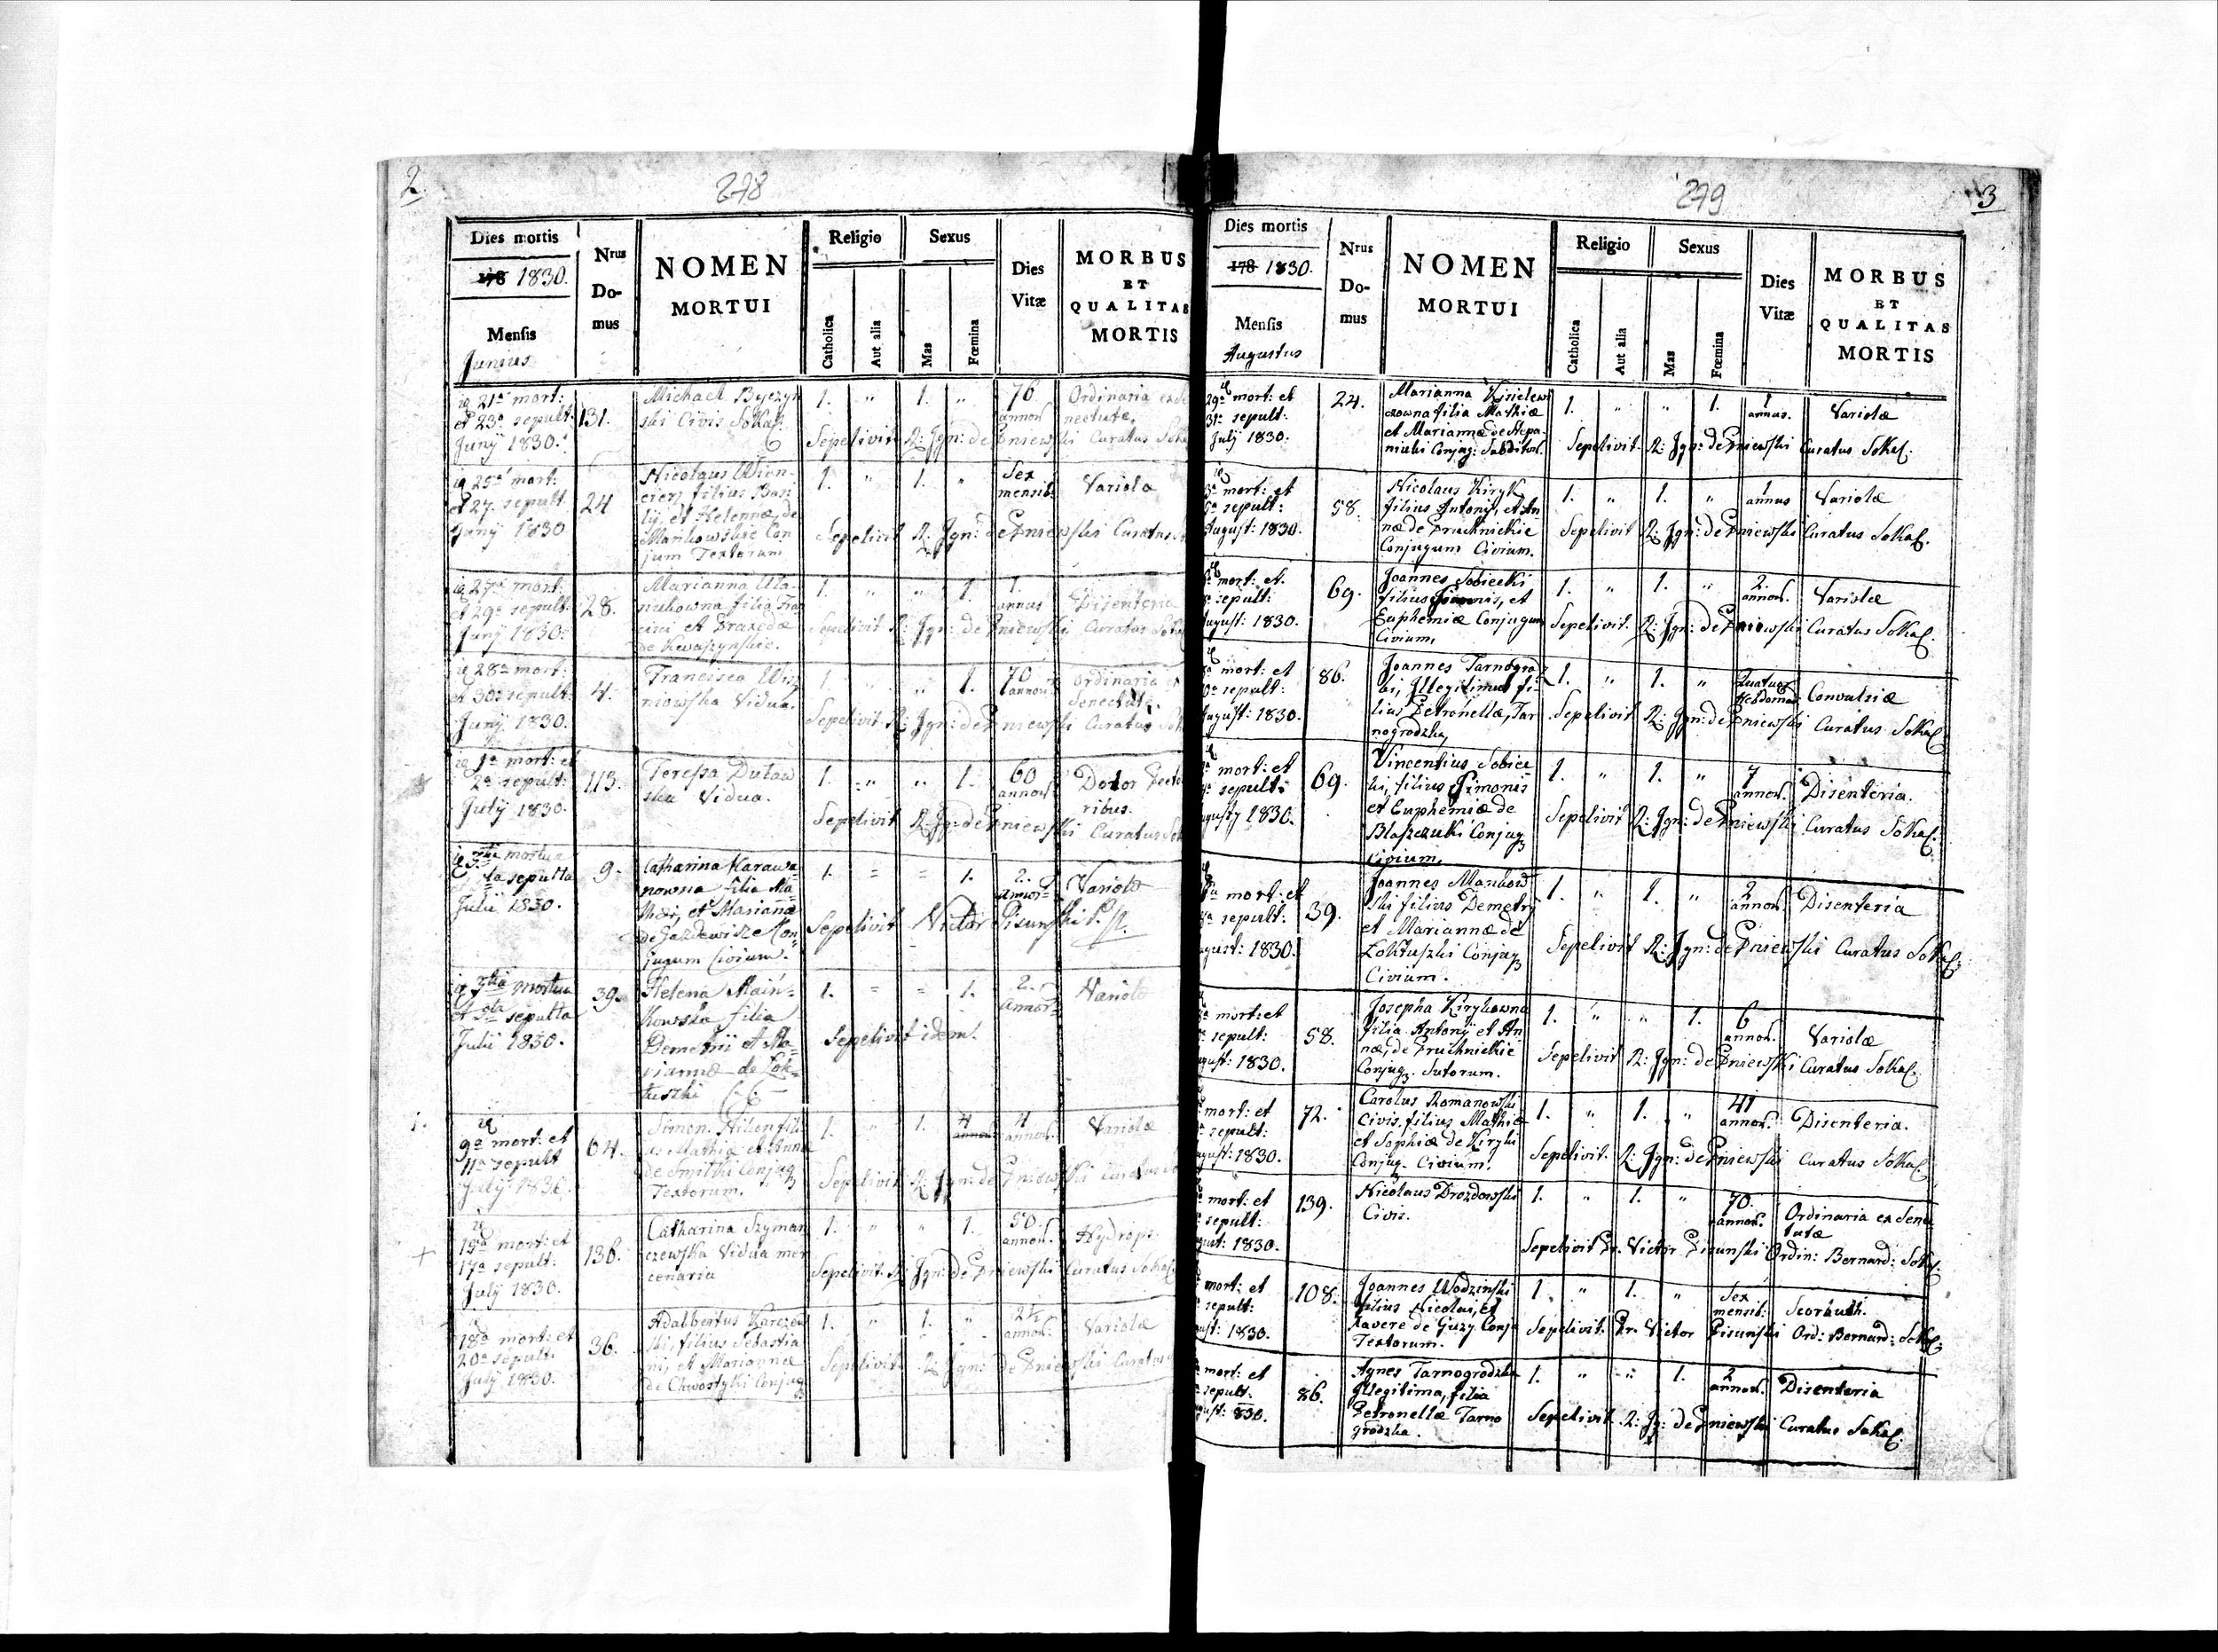 2.
278
Dies mortis
178 1830.
Mensis
Junius
Nrus
Do-
mus
NOMEN
MORTUI
Religio
Catholica
Aut alia
Sexus
Mas
Fœmina
Dies
Vitæ
MORBUS
ET
QUALITAS
MORTIS
21a mort:
et 23a sepult:
Junÿ 1830.
131.
Michael Byczyn
ski Civis Sokal.
1. " 1. "
76
annor.
Ordinaria ex Se
nectute.
Sepelivit R: Ign: de Pniewski Curatus
25a mort:
et 27. sepult
Junÿ 1830
24
Nicolaus
filius Basi
lÿ, et Helennæ de
Mankowskie Con
jum Textorum
1. " 1. "
Sex
mensib:
Variola
Sepelivit R: Ign: de Pniewski Curatus
27a mort:
et 29a sepult:
Junÿ 1830.
28.
Marianna
filia Fran
cisci et Praxedæ
de
1. " " 1.
1.
annus
Disenteria
Sepelivit R: Ign: de Pniewski Curatus
28a mort:
et 30a sepult:
Junÿ 1830.
4.
Francisca Wisz
niowska Vidua.
1. " " 1.
70
annor.
Ordinaria ex
Senectute.
Sepelivit R: Ign: de Pniewski Curatus
1a mort: et
2a sepult:
Julÿ 1830.
113.
Teressa Dutaw
ska Vidua.
1. " " 1.
60
annor.
Dolor Pecto
ribus.
Sepelivit R: Ign: de Pniewski Curatus
mortua
sepulta
Julii 1830.
9.
Catharina Karawa=
nowna filia Ma
thæi, et Mariannæ
de Gazdewisze Con=
jugum Civium.
1. = = 1.
2.
annor=
Variola
Sepelivit Victor Pisunski
mortua
et sepulta
Julii 1830.
39.
Helena Mań=
kowska filia
Demetrii et Ma=
riannæ de Łok=
tuszki C. C.
1. = = 1.
2.
annor=
Variola
Sepelivit idem.
9a mort: et
11a sepult
Julÿ 1830.
64.
Simon fili
us Mathiæ et Annæ
de Smitki Conjug
Textorum.
1. " 1. 4
annor.
4
annor.
Variola
Sepelivit R: Ign: de Pniewski Curatus
15a mort: et
17a sepult:
Julÿ 1830.
136.
Catharina Szyman
czewska Vidua mer
cenaria
1. " " 1.
50.
annor.
Hydrops
Sepelivit R: Ign: de Pniewski Curatus Sokal
18a mort: et
20a sepult:
Julÿ 1830.
36.
Adalbertus Karczew
ski, filius Sebastia
ni, et Mariannæ
de Chwostyki Conjug
1. " 1. "
2½
annor.
Variola
Sepelivit R: Ign: de Pniewski Curatus
279
3
Dies mortis
178 1830.
Mensis
Augustus
Nrus
Do-
mus
NOMEN
MORTUI
Religio
Catholica
Aut alia
Sexus
Mas
Fœmina
Dies
Vitæ
MORBUS
ET
QUALITAS
MORTIS
29a mort: et
31a sepult:
Julÿ 1830.
24.
Marianna
filia Mathiæ
et Mariannæ de Stepa
niuki Conjug: Subditor.
1. " " 1.
1
annus.
Variolæ
Sepelivit R: Ign: de Pniewski Curatus Sokal.
mort: et
sepult:
August: 1830.
58.
Nicolaus Kiryk
filius Antonÿ, et An
næ de Pruchnickie
Conjugum Civium.
1. " 1. "
1
annus
Variolæ
Sepelivit R: Ign: de Pniewski Curatus Sokal.
mort: et
sepult:
August: 1830.
69.
Joannes Sobiecki
filius Simonis, et
Euphemiæ Conjugum
Civium.
1. " 1. "
2.
annor.
Variolæ
Sepelivit R: Ign: de Pniewski Curatus Sokal.
mort: et
sepult:
August: 1830.
86.
Joannes Tarnogrodz
ki, Illegitimus fi
lius Petronellæ, Tar
nogrodzka,
1. " 1. "
Quatuor
Hebdomad:
Convulsiæ
Sepelivit R: Ign: de Pniewski Curatus Sokal.
mort: et
sepult:
Augusty 1830.
69.
Vincentius Sobiec
ki, filius Simonis
et Euphemiæ de
Blaszczuki Conjug
Civium.
1. " 1. "
7
annor.
Disenteria.
Sepelivit R: Ign: de Pniewski Curatus Sokal.
mort: et
sepult:
August: 1830.
39.
Joannes Mankow
ski filius Demetrÿ
et Mariannæ de
Łoktuszki Conjug
Civium.
1. " 1. "
2
annor.
Disenteria
Sepelivit R: Ign: de Pniewski Curatus Sokal.
mort: et
sepult:
August: 1830.
58.
Josepha Kirykowna
filia Antonÿ et An
næ, de Pruchnickie
Conjug. Sutorum.
1. " " 1.
6
annor.
Variolæ
Sepelivit R: Ign: de Pniewski Curatus Sokal.
mort: et
sepult:
August: 1830.
72.
Carolus Romanowski
Civis, filius Mathiæ
et Sophiæ de Kiryki
Conjug. Civium.
1. " 1. "
41
annor.
Disenteria.
Sepelivit R: Ign: de Pniewski Curatus Sokal.
mort: et
sepult:
August: 1830.
139.
Nicolaus Drozdowski
Civis.
1. " 1. "
70.
annor.
Ordinaria ex Senec
tutæ
Sepelivit Pr. Victor Pisunski Ordin: Bernard: Sokal.
mort: et
sepult:
1830.
108.
Joannes Wodzinski
filius Nicolai, et
Xavere de Guzy Conju
Textorum.
1. " 1. "
Sex
mensib:
Scorbuth.
Sepelivit Pr. Victor Pisunski Ord: Bernard: Sokal.
mort: et
sepult:
830.
86.
Agnes Tarnogrodzka
Illegitima, filia
Petronellæ Tarno
grodzka.
1. " " 1.
2
annor.
Disenteria
Sepelivit R: Ig: de Pniewski Curatus Sokal.